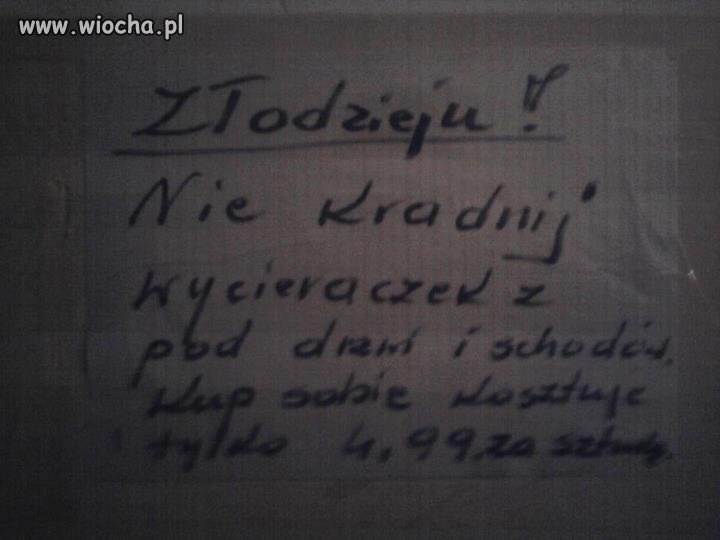 www.wiocha.pl
Złodzieju!
Nie kradnij
wycieraczek z
pod drzwi i schodów.
Kup sobie kosztuje
tylko 4,99 za sztukę.